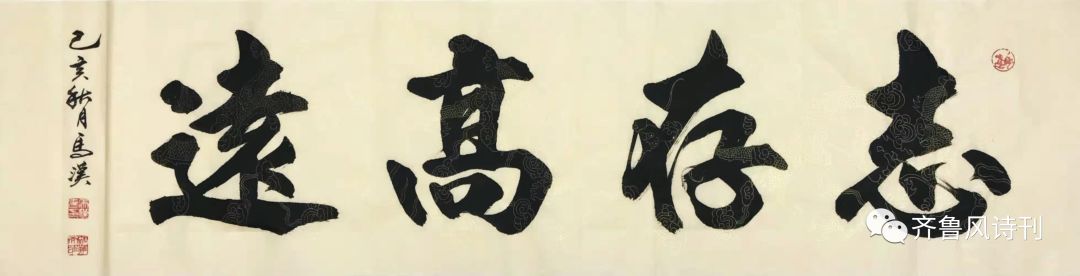 志存高遠
己亥秋月馬
齐鲁风诗刊